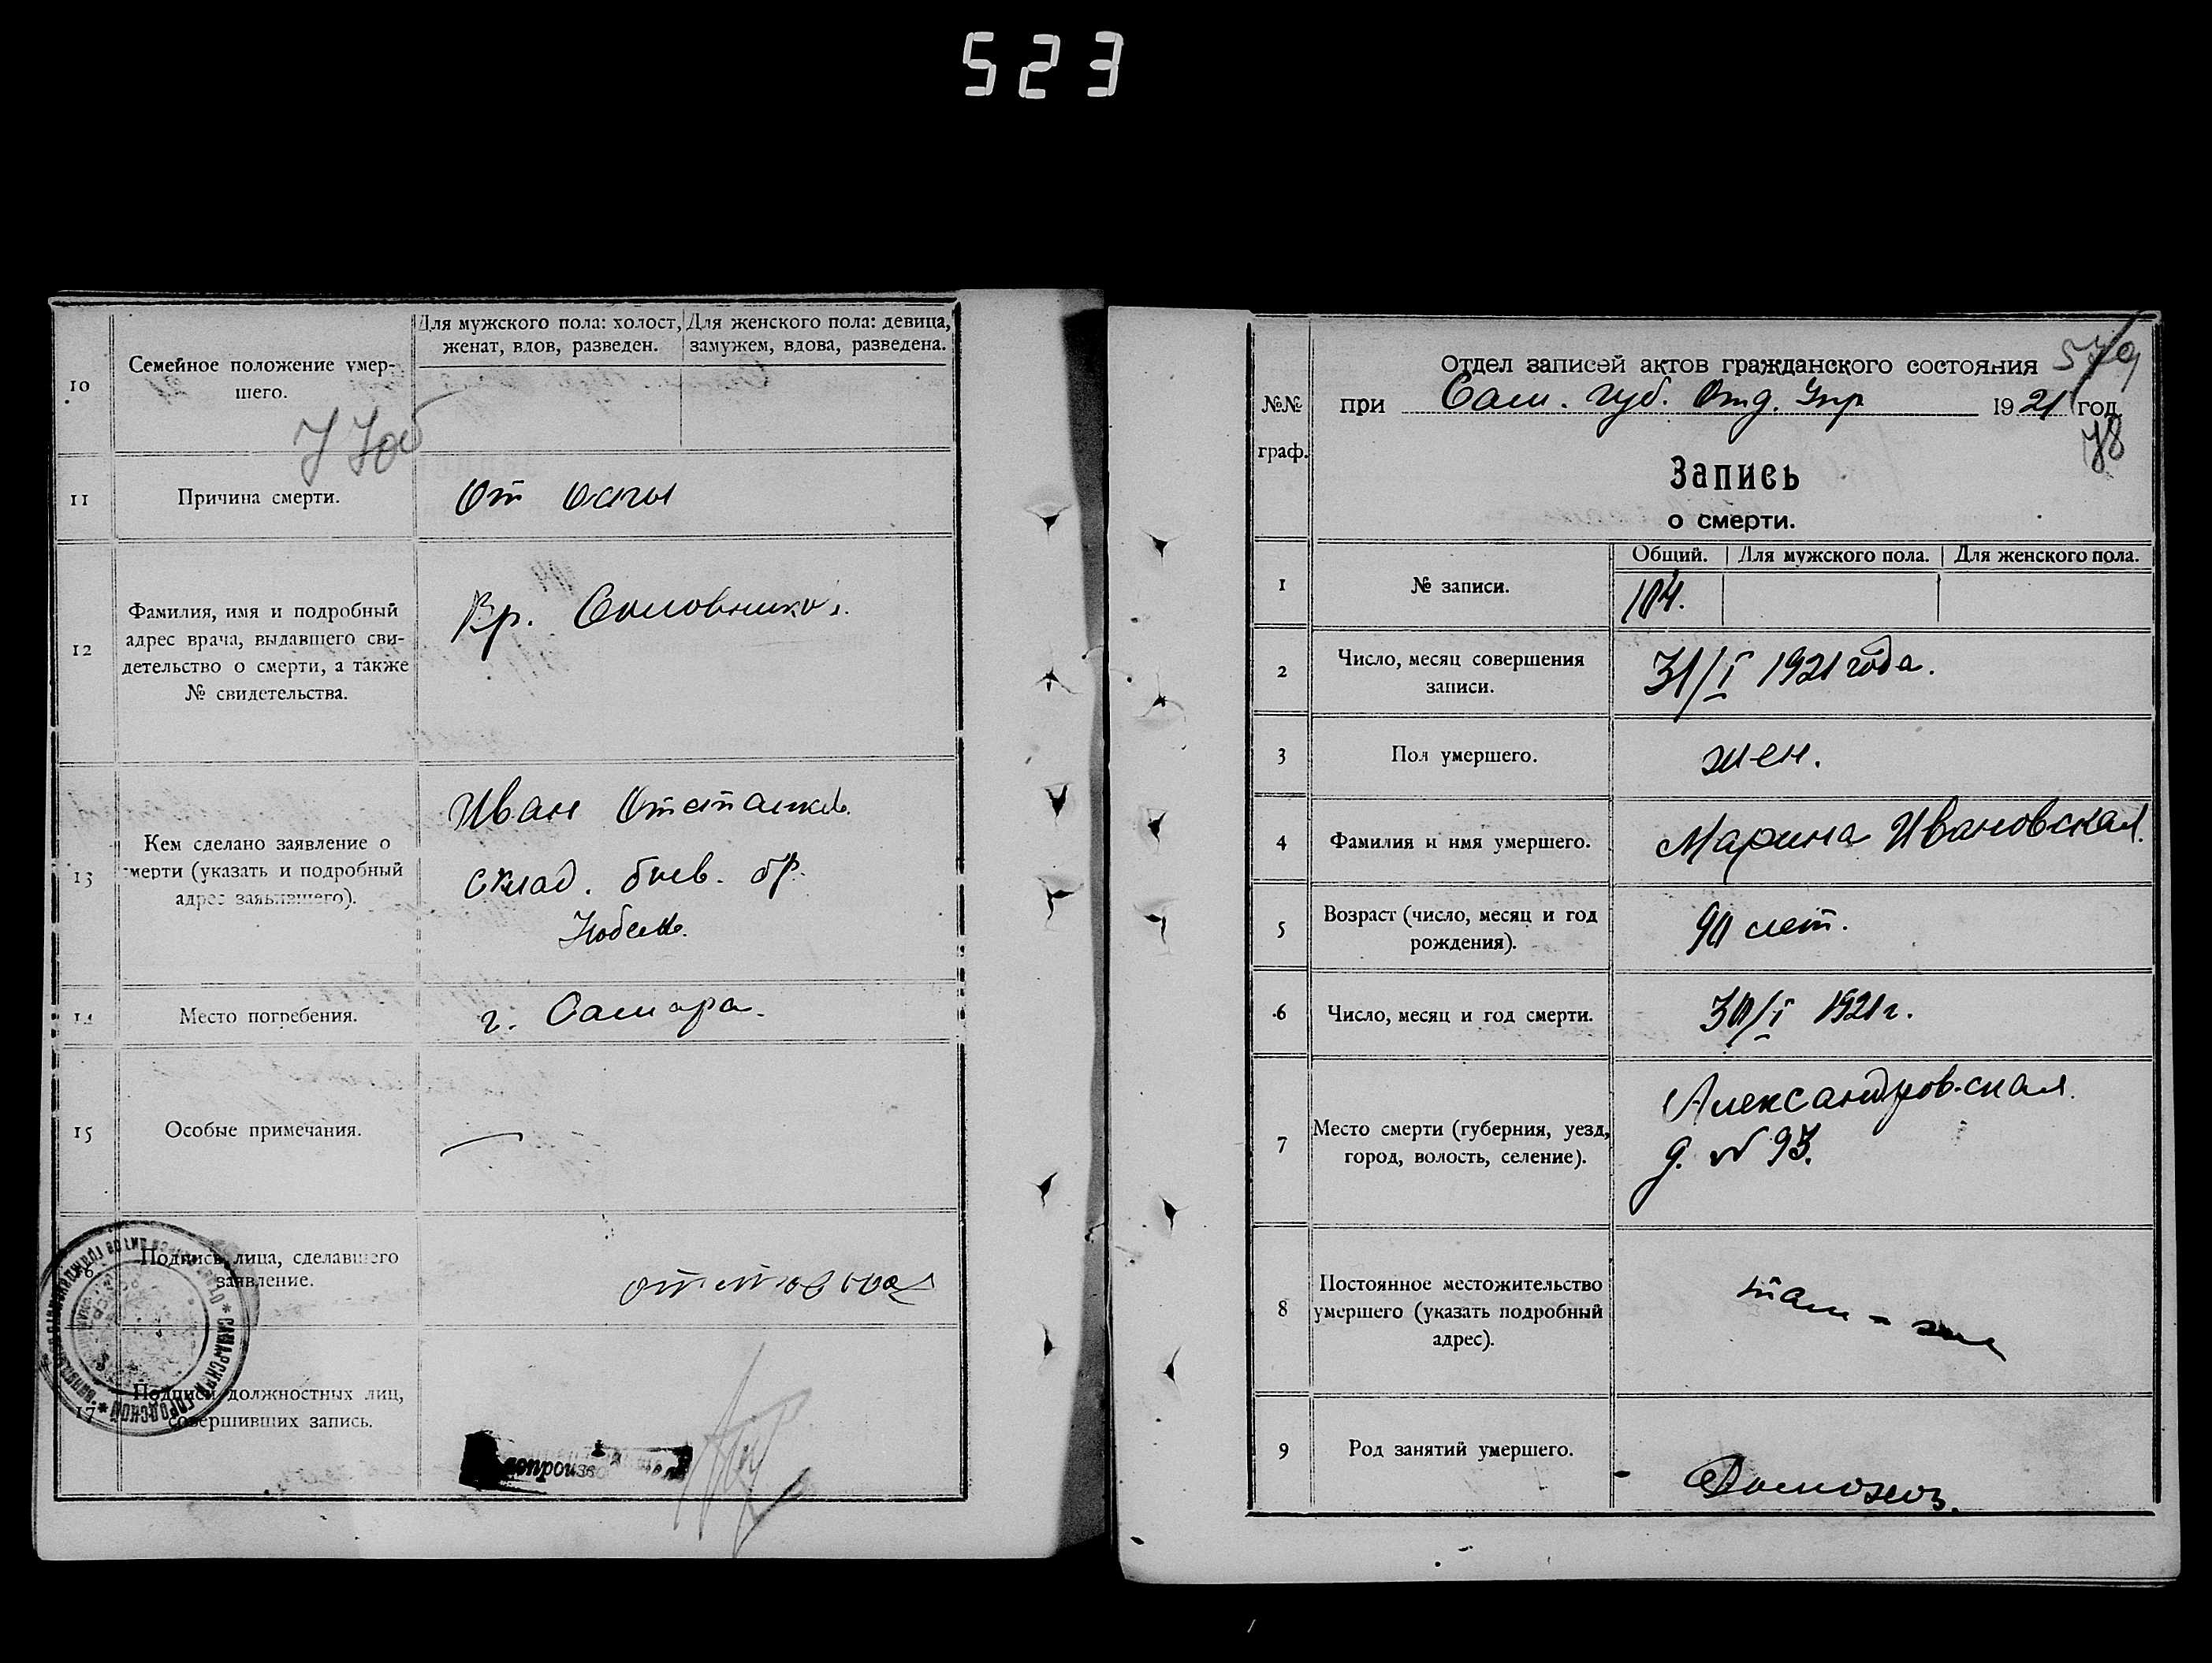 523
10
Семейное положение умер-
шего.
Для мужского пола: холост,
женат, вдов, разведен.
Для женского пола: девица,
замужем, вдова, разведена.
11
Причина смерти.
От оспы
12
Фамилия, имя и подробный
адрес врача, выдавшего сви-
детельство о смерти, а также
№ свидетельства.
Вр.
13
Кем сделано заявление о
смерти (указать и подробный
адрес заявившего).
Иван
склад. быв. бр.
Нобель.
14
Место погребения.
г. Самара.
15
Особые примечания.
16
Подпись лица, сделавшего
заявление.
17
Подписи должностных лиц,
совершивших запись.
№№
граф.
Отдел записей актов гражданского состояния
при Сам. губ. Отд. Упр 1921 год.
78
Запись
о смерти.
1
№ записи.
Общий. Для мужского пола. Для женского пола.
104.
2
Число, месяц совершения
записи.
31/I 1921 года.
3
Пол умершего.
жен.
4
Фамилия и имя умершего.
Марина Ивановская.
5
Возраст (число, месяц и год
рождения).
90 лет.
6
Число, месяц и год смерти.
30/I 1921 г.
7
Место смерти (губерния, уезд,
город, волость, селение).
Александровская.
д. № 93.
8
Постоянное местожительство
умершего (указать подробный
адрес).
там-же
9
Род занятий умершего.
Домохоз.